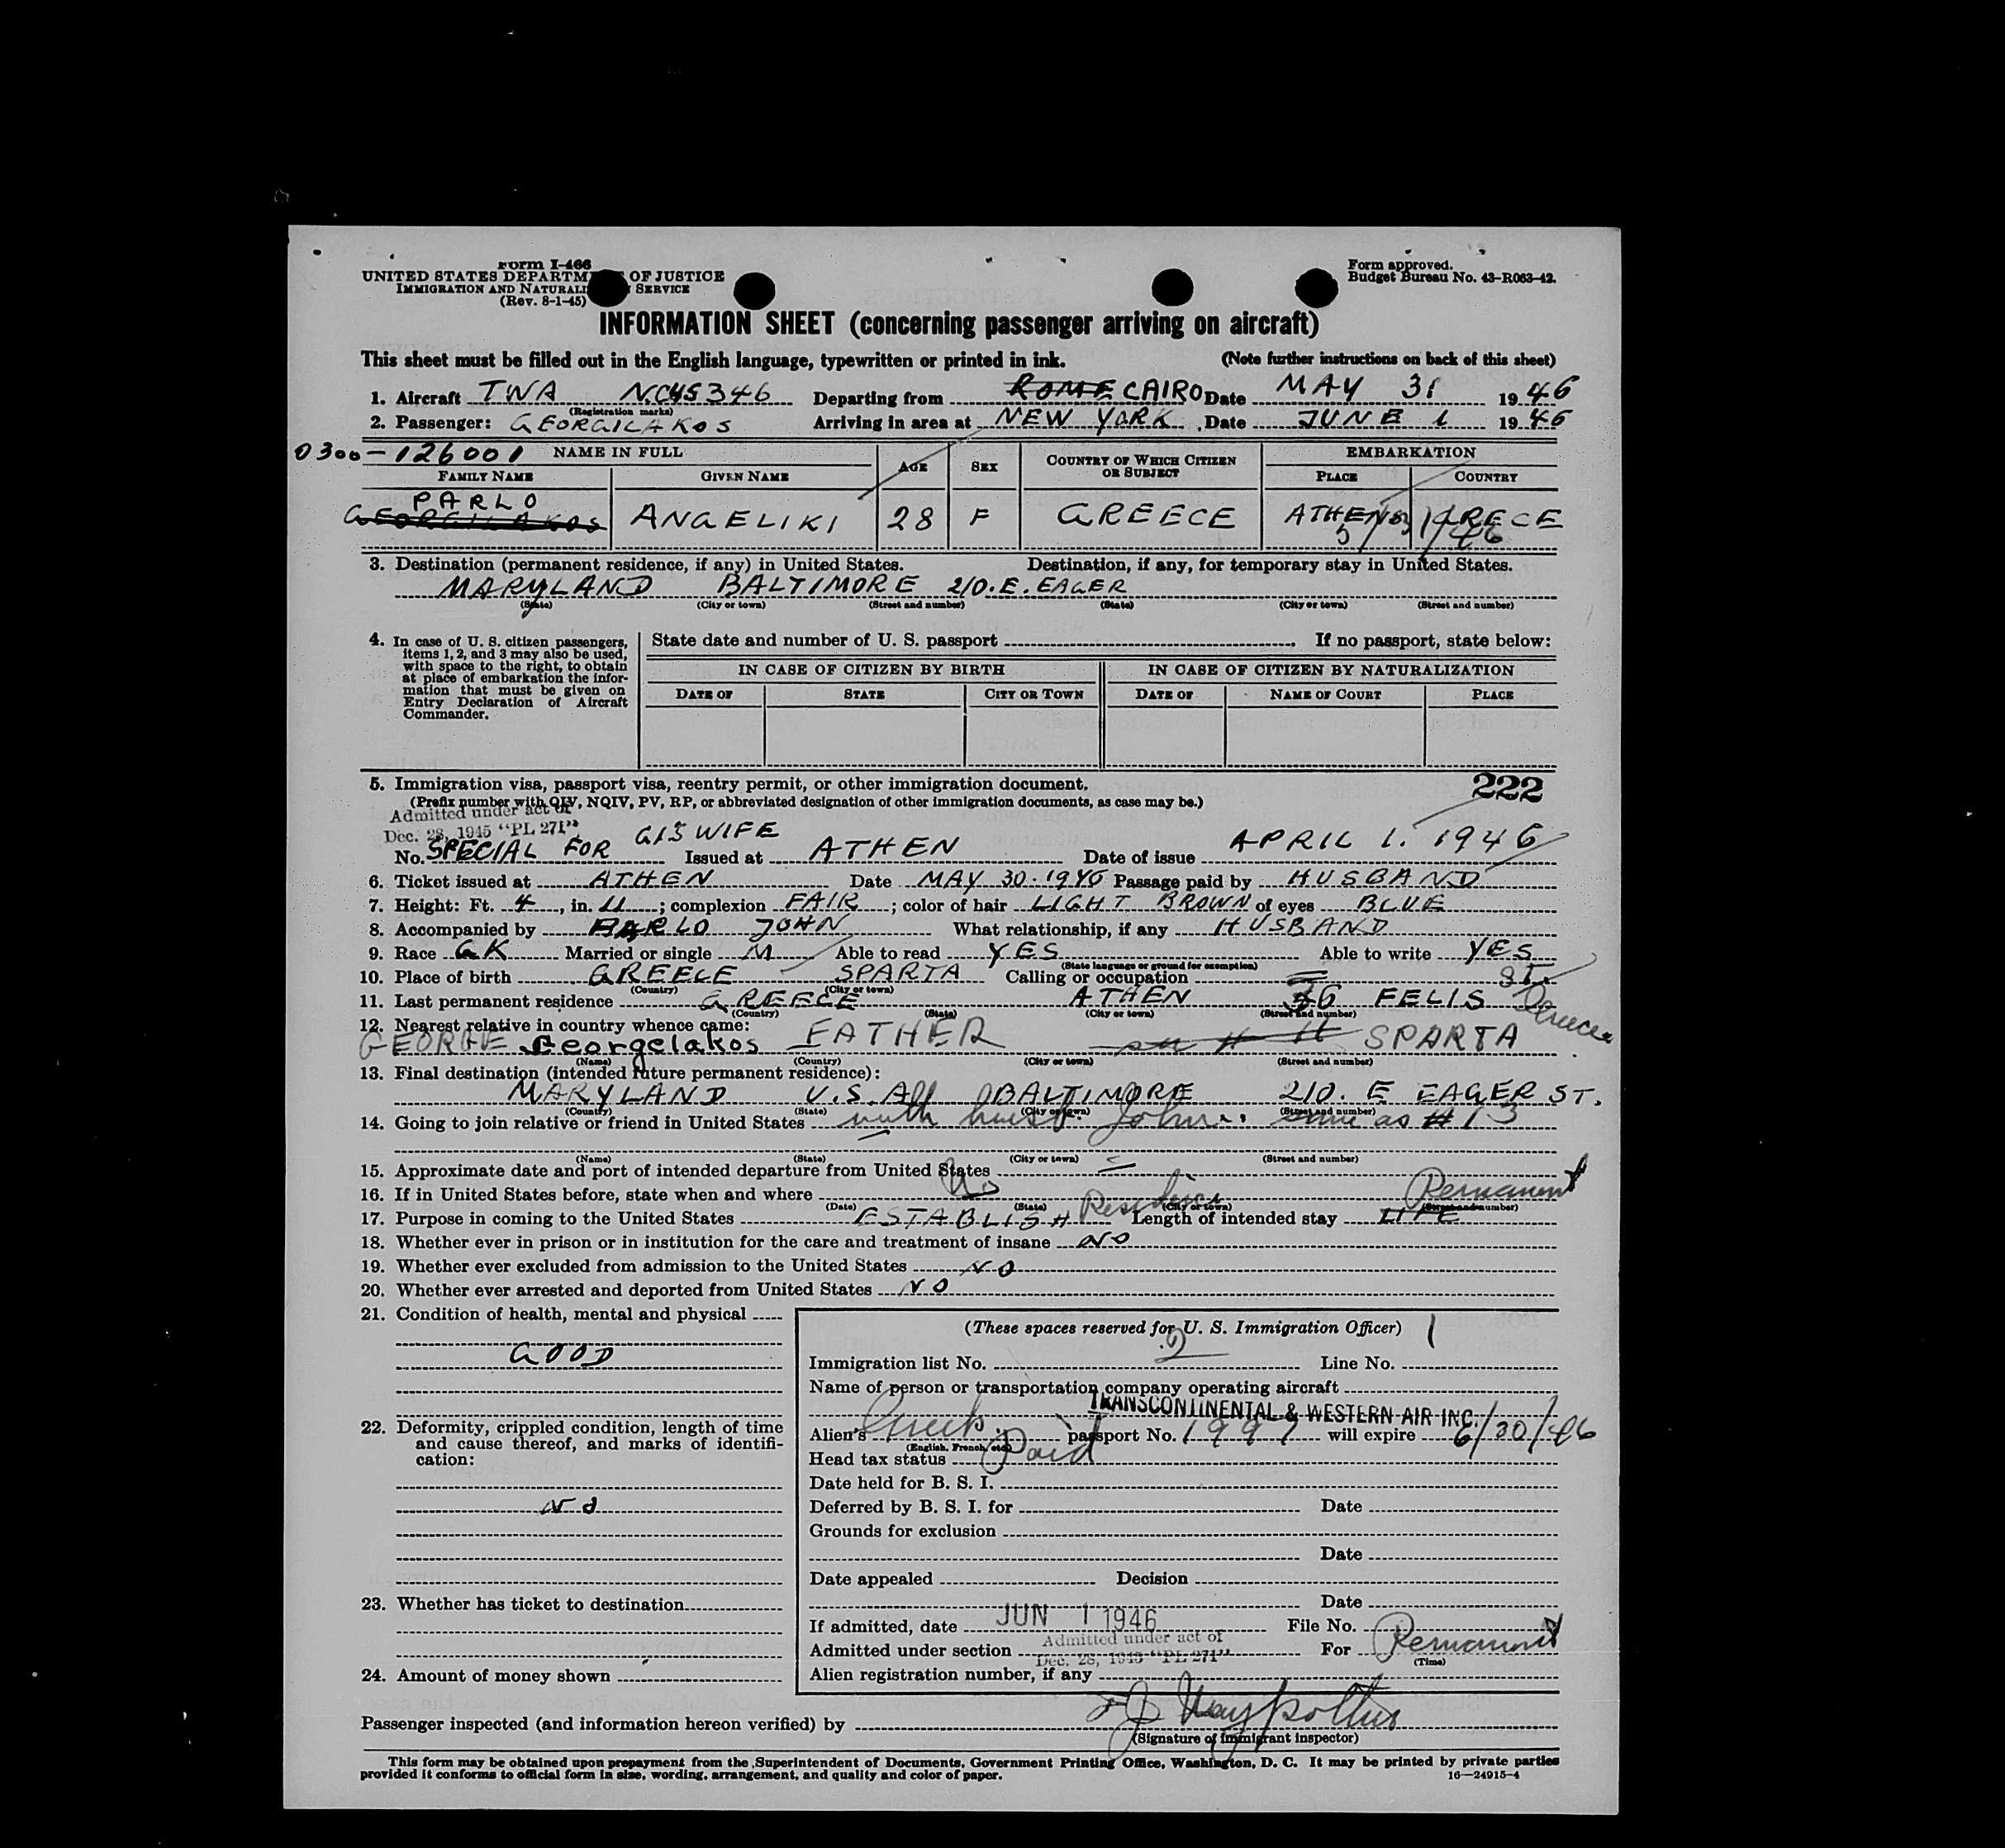 Form I-466
UNITED STATES DEPARTM OF JUSTICE
IMMIGRATION AND NATURALI SERVICE
(Rev. 8-1-45)
Form approved.
Budget Bureau No. 43-R063-42.
INFORMATION SHEET (concerning passenger arriving on aircraft)
This sheet must be filled out in the English language, typewritten or printed in ink. (Note further instructions on back of this sheet)
1. Aircraft TWA NC45346 Departing from ROME CAIRO Date MAY 31 1946
(Registration marks)
2. Passenger: GEORGILAKOS Arriving in area at NEW YORK Date JUNE 1 1946
0300-126001 NAME IN FULL AGE SEX COUNTRY OF WHICH CITIZEN OR SUBJECT EMBARKATION
FAMILY NAME GIVEN NAME PLACE COUNTRY
PARLO
GEORGILAKOS ANGELIKI 28 F GREECE ATHENS GRECE
5/31/46
3. Destination (permanent residence, if any) in United States. Destination, if any, for temporary stay in United States.
MARYLAND BALTIMORE 210.E.EAGER
(State) (City or town) (Street and number) (State) (City or town) (Street and number)
4. In case of U. S. citizen passengers, items 1, 2, and 3 may also be used, with space to the right, to obtain at place of embarkation the information that must be given on Entry Declaration of Aircraft Commander.
State date and number of U. S. passport If no passport, state below:
IN CASE OF CITIZEN BY BIRTH IN CASE OF CITIZEN BY NATURALIZATION
DATE OF STATE CITY OR TOWN DATE OF NAME OF COURT PLACE
5. Immigration visa, passport visa, reentry permit, or other immigration document. 222
(Prefix number with QIV, NQIV, PV, RP, or abbreviated designation of other immigration documents, as case may be.)
Admitted under act of
Dec. 28, 1945 "PL 271"
No. SPECIAL FOR GI'S WIFE Issued at ATHEN Date of issue APRIL 1. 1946
6. Ticket issued at ATHEN Date MAY 30.1946 Passage paid by HUSBAND
7. Height: Ft. 4, in. 11; complexion FAIR; color of hair LIGHT BROWN of eyes BLUE
8. Accompanied by PARLO JOHN What relationship, if any HUSBAND
9. Race GK Married or single M Able to read YES Able to write YES
(State language or ground for exemption)
10. Place of birth GREECE SPARTA Calling or occupation
(Country) (City or town)
11. Last permanent residence GREECE ATHEN 36 FELIS ST.
(Country) (State) (City or town) (Street and number)
12. Nearest relative in country whence came:
GEORGE Georgelakos FATHER SPARTA
(Name) (Country) (City or town) (Street and number)
13. Final destination (intended future permanent residence):
MARYLAND U.S.A BALTIMORE 210. E EAGER ST.
(Country) (State) (City or town) (Street and number)
14. Going to join relative or friend in United States with husb. John same as #13
(Name) (State) (City or town) (Street and number)
15. Approximate date and port of intended departure from United States
16. If in United States before, state when and where No
(Date) (State) (City or town) (Street and number)
17. Purpose in coming to the United States ESTABLISH Residence Length of intended stay LIFE Permanent
18. Whether ever in prison or in institution for the care and treatment of insane NO
19. Whether ever excluded from admission to the United States NO
20. Whether ever arrested and deported from United States NO
21. Condition of health, mental and physical
GOOD
22. Deformity, crippled condition, length of time and cause thereof, and marks of identification:
NO
23. Whether has ticket to destination
24. Amount of money shown
(These spaces reserved for U. S. Immigration Officer)
Immigration list No. 2 Line No. 1
Name of person or transportation company operating aircraft
TRANSCONTINENTAL & WESTERN AIR INC.
Alien's Greek passport No. 1997 will expire 6/30/46
(English, French, etc.)
Head tax status Paid
Date held for B. S. I.
Deferred by B. S. I. for Date
Grounds for exclusion
Date
Date appealed Decision
Date
If admitted, date JUN 1 1946 File No.
Admitted under section Admitted under act of Dec. 28, 1945 "PL 271" For Permanent
(Time)
Alien registration number, if any
Passenger inspected (and information hereon verified) by
(Signature of immigrant inspector)
This form may be obtained upon prepayment from the Superintendent of Documents, Government Printing Office, Washington, D. C. It may be printed by private parties
provided it conforms to official form in size, wording, arrangement, and quality and color of paper. 16—24915-4